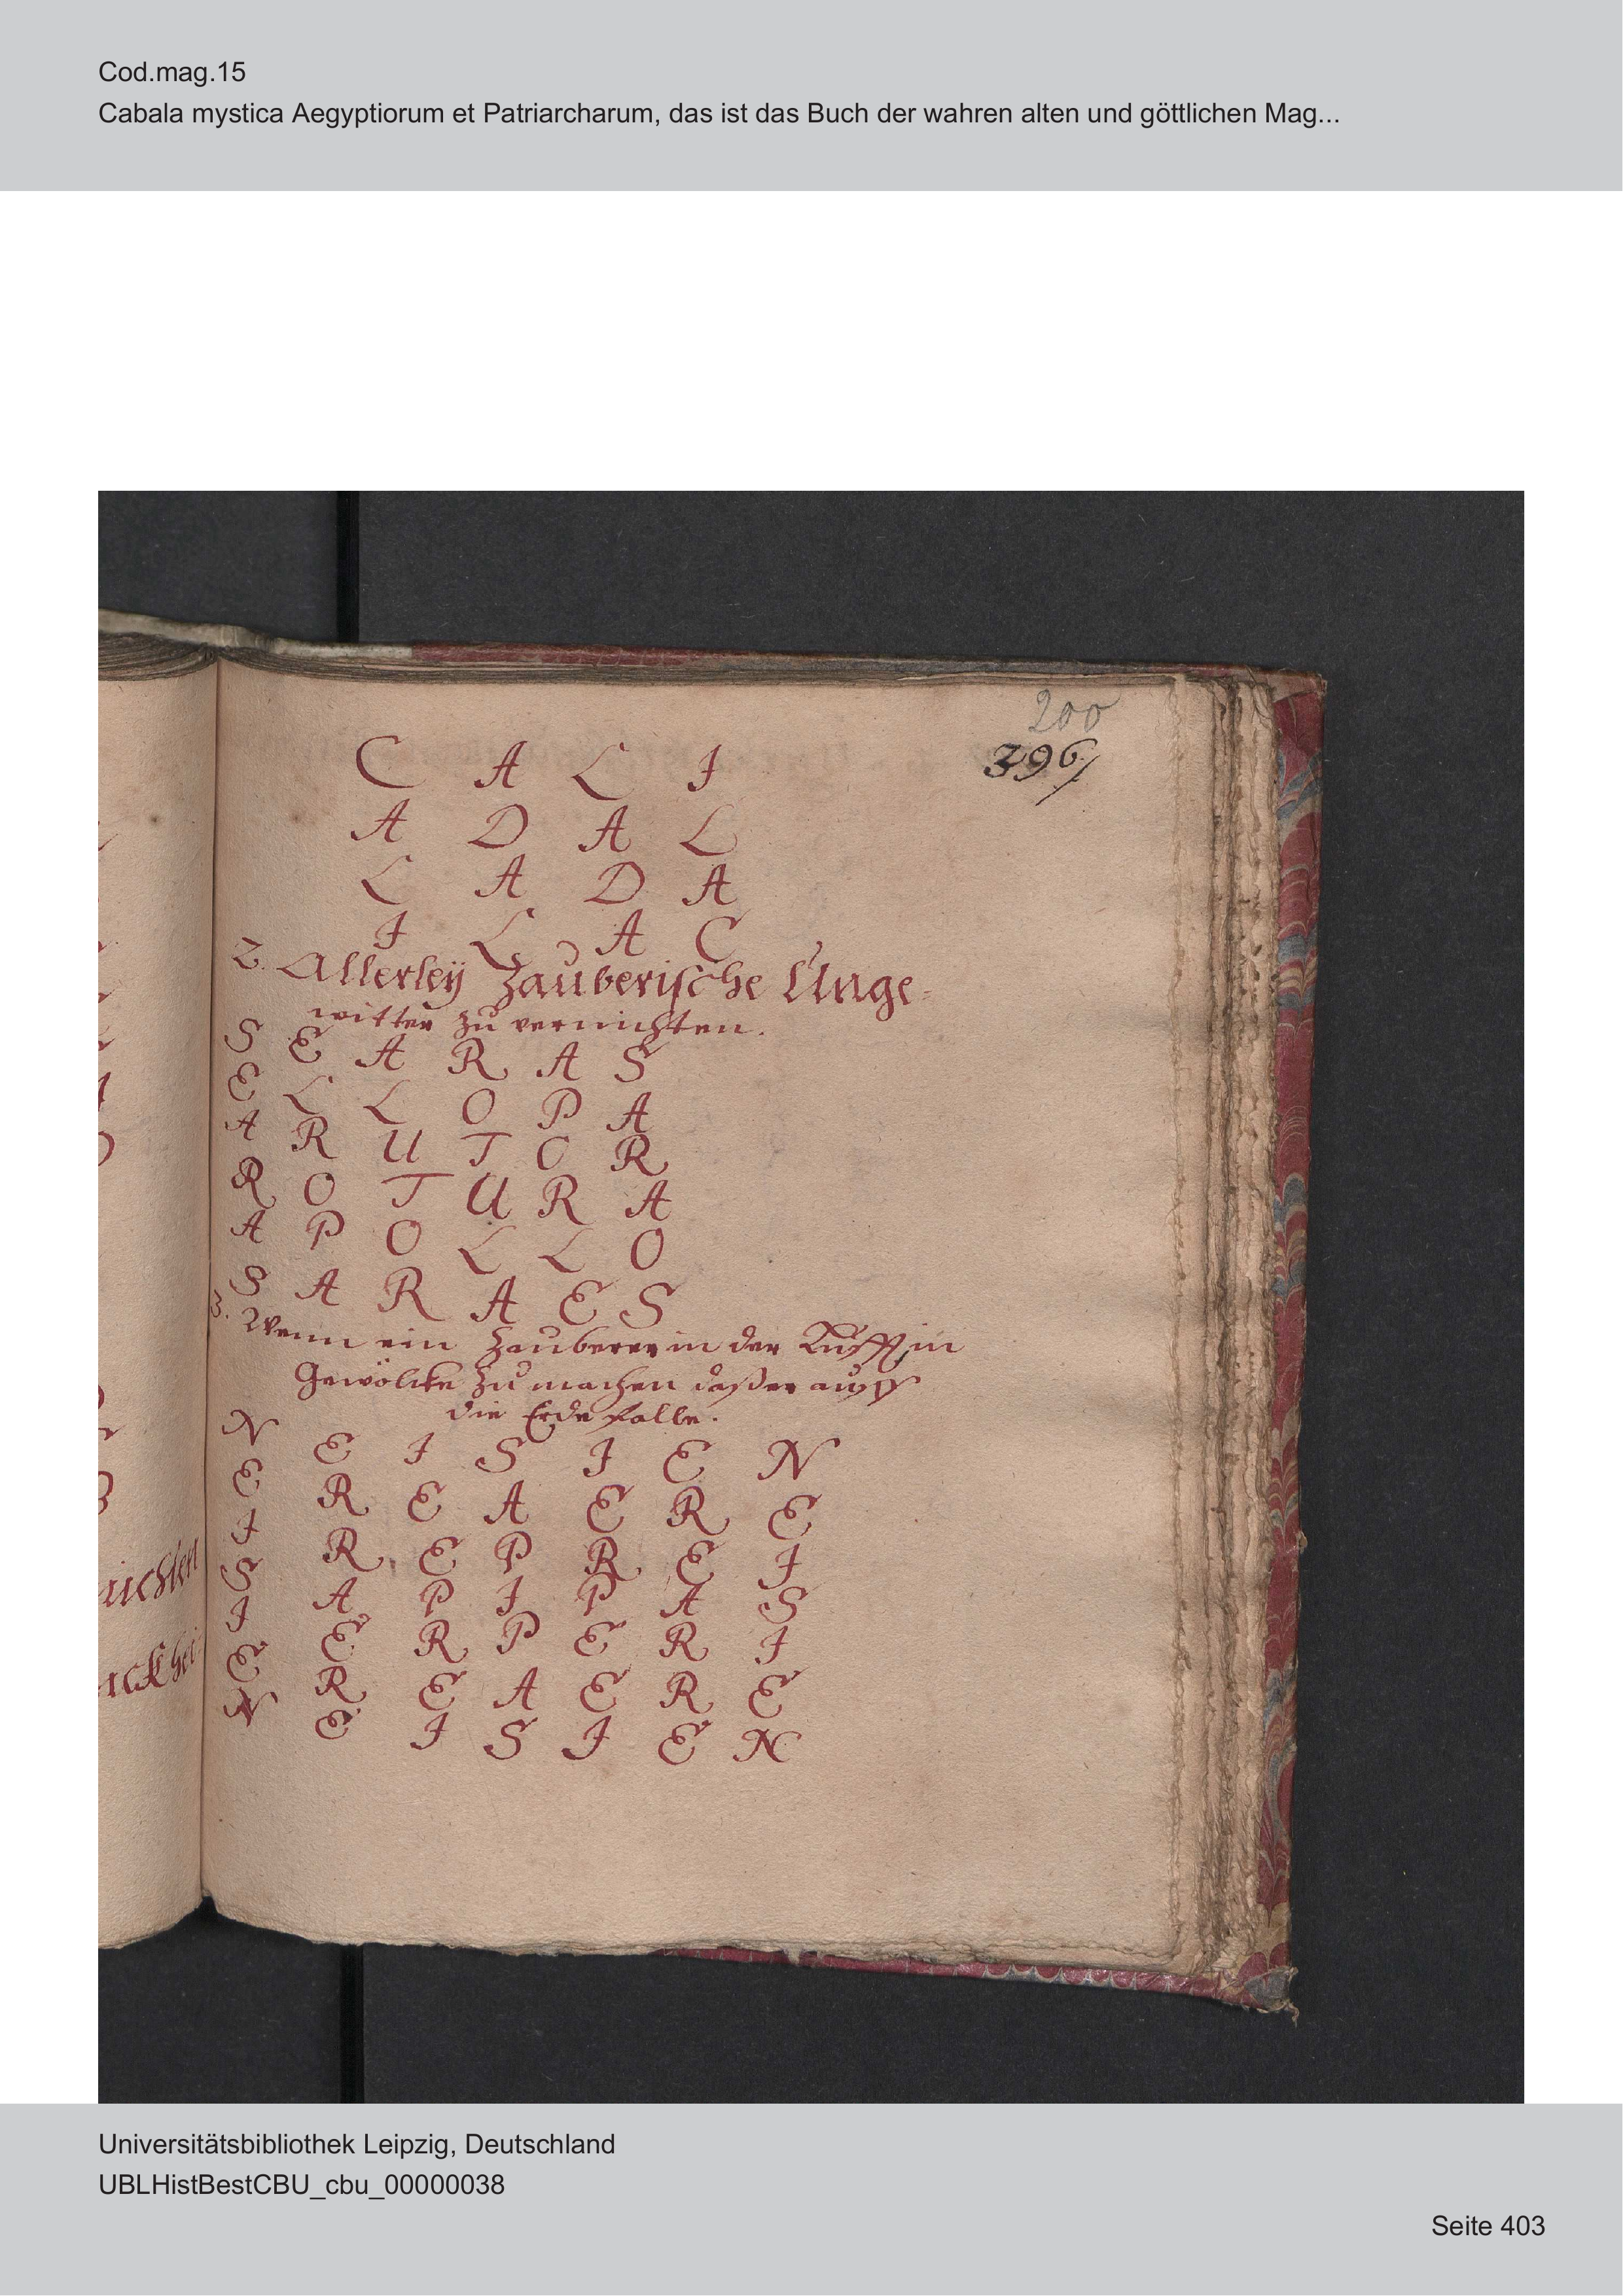 Cod.mag.15
Cabala mystica Aegyptiorum et Patriarcharum, das ist das Buch der wahren alten und göttlichen Mag...
200
396/
C A L I
A D A L
L A D A
I L A C
2. Allerleÿ Zauberische Unge-
witter zu vernichten.
S E A R A S
E L L O P A
A R U T O R
R O T U R A
A P O L L O
S A R A E S
3. Wenn ein Zauberer in der Lufft, in
Gewölcke zu machen daßer auff
die Erde falle.
N E I S I E N
E R E A E R E
I R E P R E I
S A P I P A S
I E R P E R I
E R E A E R E
N E I S I E N
Universitätsbibliothek Leipzig, Deutschland
UBLHistBestCBU_cbu_00000038
Seite 403